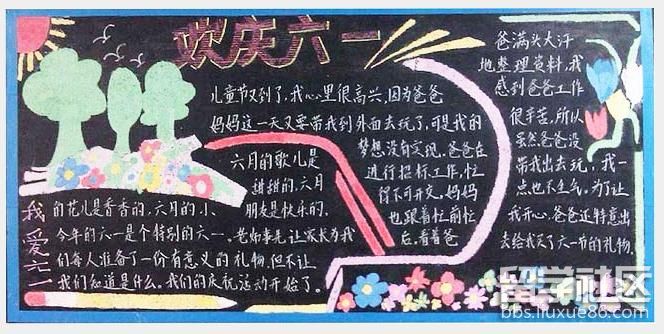 欢庆六一
儿童节又到了,我心里很高兴,因为爸爸
妈妈这一天又要带我到外面去玩了,可是我的
梦想没有实现。爸爸在
进行招标工作,忙
得不可开交,妈妈
也跟着忙前忙
后。看着爸
爸满头大汗
地整理资料,我
感到爸爸工作
很辛苦,所以
虽然爸爸没
带我出去玩,我一
点也不生气,为了让
我开心,爸爸还特意出
去给我买了六一节的礼物。
六月的歌儿是
甜甜的,六月
的花儿是香香的,六月的小
朋友是快乐的。
我爱六一
今年的六一是个特别的六一。老师事先让家长为我
们每人准备了一份有意义的礼物,但不让
我们知道是什么。我们的庆祝活动开始了。
留学社区
bbs.liuxue86.com